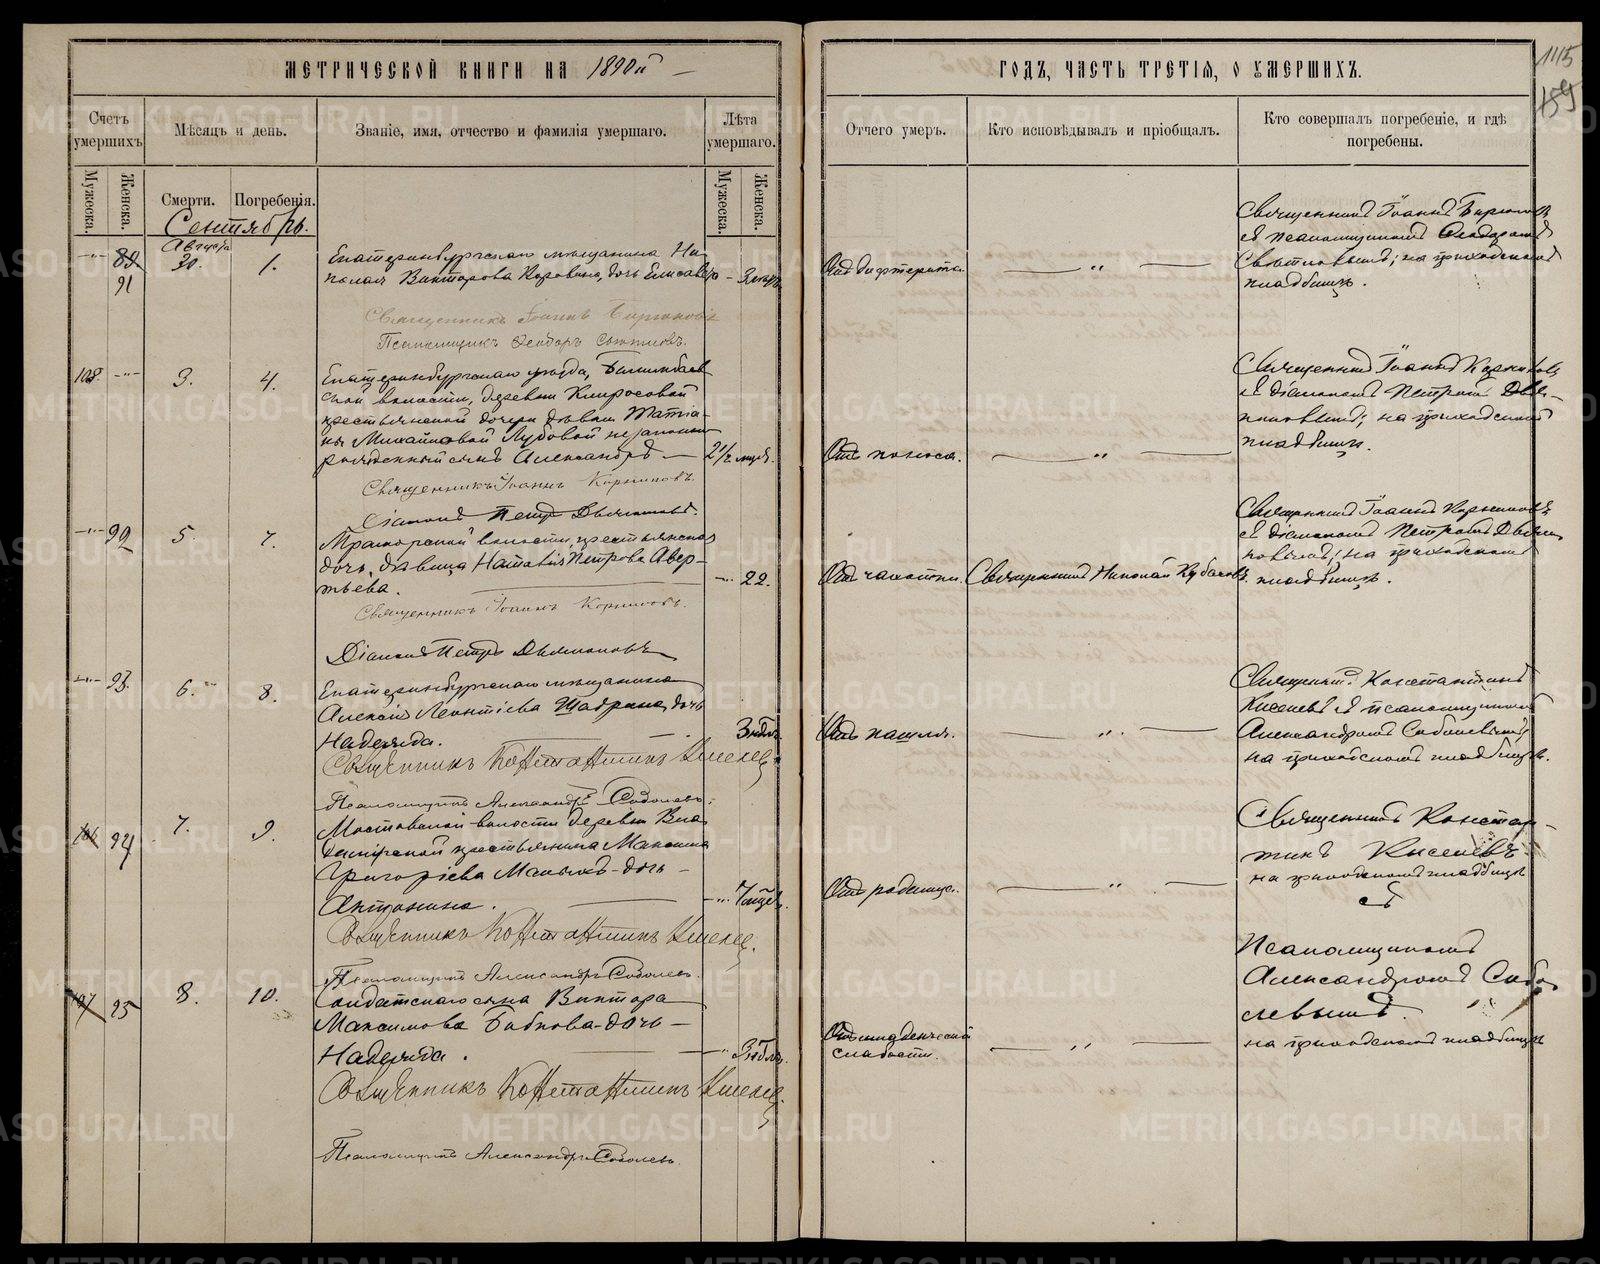 МЕТРИЧЕСКОЙ КНИГИ НА 1890й
ГОДЪ, ЧАСТЬ ТРЕТІЯ, О УМЕРШИХЪ.
1115
159
Счетъ умершихъ
Мѣсяцъ и день.
Званіе, имя, отчество и фамилія умершаго.
Лѣта умершаго.
Отчего умеръ.
Кто исповѣдывалъ и пріобщалъ.
Кто совершалъ погребеніе, и гдѣ погребены.
Мужеска.
Женска.
Смерти.
Погребенія.
Мужеска.
Женска.
Сентябрь.
89
91
Августа
30.
1.
Екатеринбургскаго мѣщанина Ни-
колая Викторова Коровина, дочь Елисавета
Отъ дифтерита.
Священникъ Іоаннъ
съ псаломщикомъ Ѳеодоромъ
на приходскомъ
кладбищѣ.
Священникъ Іоаннъ
Псаломщикъ Ѳеодоръ
3.
4.
Екатеринбургскаго уѣзда, Билимбаев
ской волости, деревни
крестьянской дочери дѣвки Татiа-
ны Михайловой незаконно
рожденный сынъ Александръ
2 1/2 мѣся.
Отъ поноса.
Священникъ Іоаннъ Корниловъ
съ діакономъ Петромъ Двея-
коновымъ; на приходскомъ
кладбищѣ.
Священникъ Іоаннъ Корниловъ.
Діаконъ Петръ
92
5.
7.
Мраморской волости, крестьянская
дочь, дѣвица Наталія Петрова Авер-
кьева.
22.
Отъ чахотки.
Священникъ Николай
Священникъ Іоаннъ Корниловъ
съ діакономъ Петромъ
на приходскомъ
кладбищѣ.
Священникъ Іоаннъ Корниловъ.
Діаконъ Петръ
93.
6.
8.
Екатеринбургскаго мѣщанина
Алексія Леонтіева Шадрина, дочь
Надежда.
3 нед.
Отъ кашля.
Священникъ Константинъ
Киселевъ съ псаломщикомъ
Александромъ Соболевымъ;
на приходскомъ кладбищѣ.
Священникъ Константинъ Киселевъ
Псаломщикъ Александръ Соболевъ.
106
94
7.
9.
Мостовской волости деревни Вла-
димірской крестьянина Максима
Григоріева дочь
Антонина.
7 мѣся.
Отъ родимца.
Священникъ Констан-
тинъ Киселевъ
на приходскомъ кладбищѣ
съ
Псаломщикомъ
Александромъ Собо-
левымъ.
Священникъ Константинъ Киселевъ.
Псаломщикъ Александръ Соболевъ.
107
95
8.
10.
Солдатскаго сына Виктора
Максимова Бабкова дочь
Надежда.
3 нед.
Отъ младенческой
слабости.
на приходскомъ кладбищѣ
Священникъ Константинъ Киселевъ.
Псаломщикъ Александръ Соболевъ.
METRIKI.GASO-URAL.RU